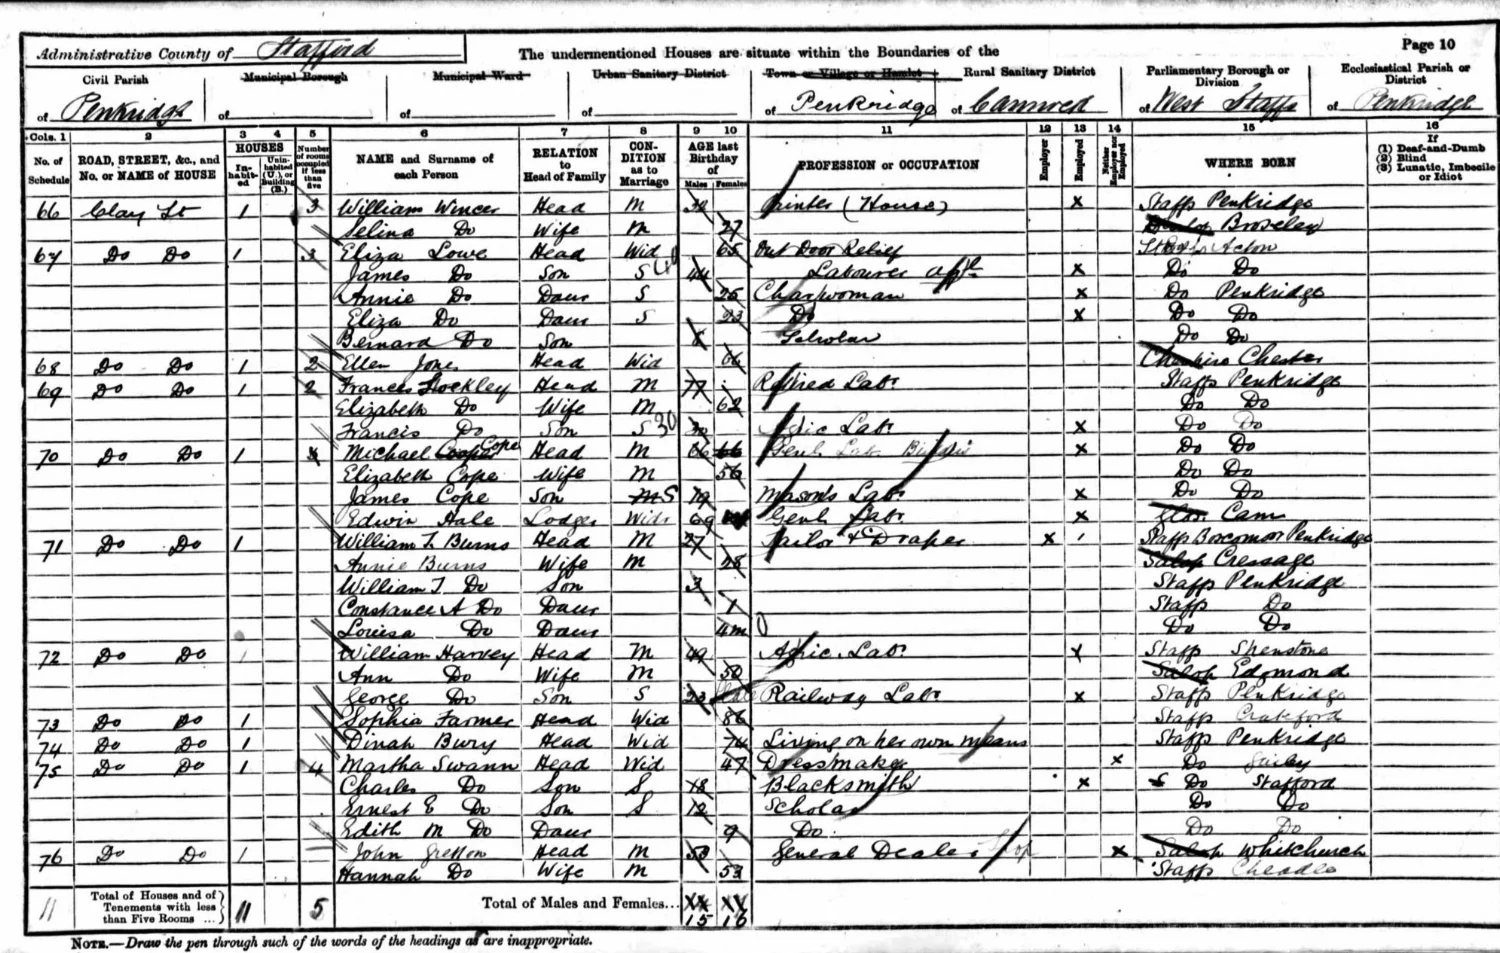 Administrative County of Stafford
The undermentioned Houses are situate within the Boundaries of the
Page 10
Civil Parish of Penkridge
Municipal Borough of
Municipal Ward of
Urban Sanitary District of
Town or Village or Hamlet of Penkridge
Rural Sanitary District of Cannock
Parliamentary Borough or Division of West Staffs
Ecclesiastical Parish or District of Penkridge
Cols. 1 2 3 4 5 6 7 8 9 10 11 12 13 14 15 16
No. of Schedule
ROAD, STREET, &c., and No. or NAME of HOUSE
HOUSES
Inhabited
Uninhabited (U.), or Building (B.)
Number of rooms occupied if less than five
NAME and Surname of each Person
RELATION to Head of Family
CONDITION as to Marriage
AGE last Birthday of
Males Females
PROFESSION or OCCUPATION
Employer
Employed
Neither Employer nor Employed
WHERE BORN
If (1) Deaf-and-Dumb (2) Blind (3) Lunatic, Imbecile or Idiot
66 Clay St 1 3 William Wincer Head M Painter (House) X Staffs Penkridge
Selina Do Wife M 27 Broseley
67 Do Do 1 3 Eliza Lowe Head Wid 65 Out Door Relief Acton
James Do Son S 44 Labourer X Do Do
Annie Do Daur S 25 Charwoman X Do Penkridge
Eliza Do Daur S 23 Do X Do Do
Bernard Do Son 8 Scholar Do Do
68 Do Do 1 2 Ellen Jones Head Wid 66 Cheshire Chester
69 Do Do 1 2 Francis Lockley Head M 77 Retired Labr Staffs Penkridge
Elizabeth Do Wife M 62 Do Do
Francis Do Son S 30 Agric Labr X Do Do
70 Do Do 1 Michael Cope Head M 66 Genl Lab X Do Do
Elizabeth Cope Wife M 56 Do Do
James Cope Son M S 19 Mason's Labr X Do Do
Edwin Hale Lodger Widr 69 Genl Labr X Cam
71 Do Do 1 William T. Burns Head M 27 Tailor & Draper X Staffs Penkridge
Annie Burns Wife M 28 Salop Cressage
William T. Do Son 3 Staffs Penkridge
Constance A Do Daur 1 Staffs Do
Louisa Do Daur 4m Do Do
72 Do Do 1 William Harvey Head M 49 Agric. Labr X Staffs Shenstone
Ann Do Wife M 50 Salop Edgmond
George Do Son S 23 Railway Labr X Staffs Penkridge
73 Do Do 1 Sophia Farmer Head Wid 86 Staffs
74 Do Do 1 Dinah Bury Head Wid 74 Living on her own means Staffs Penkridge
75 Do Do 1 4 Martha Swann Head Wid 47 Dressmaker X Do Gailey
Charles Do Son S 18 Blacksmith X Do Stafford
Ernest E Do Son S 12 Scholar Do Do
Edith M Do Daur 9 Do Do Do
76 Do Do 1 John Head M 58 General Dealer Shop X Salop Whitchurch
Hannah Do Wife M 53 Staffs Cheadle
11 Total of Houses and of Tenements with less than Five Rooms ... 11 5 Total of Males and Females... 15 16
NOTE.—Draw the pen through such of the words of the headings as are inappropriate.